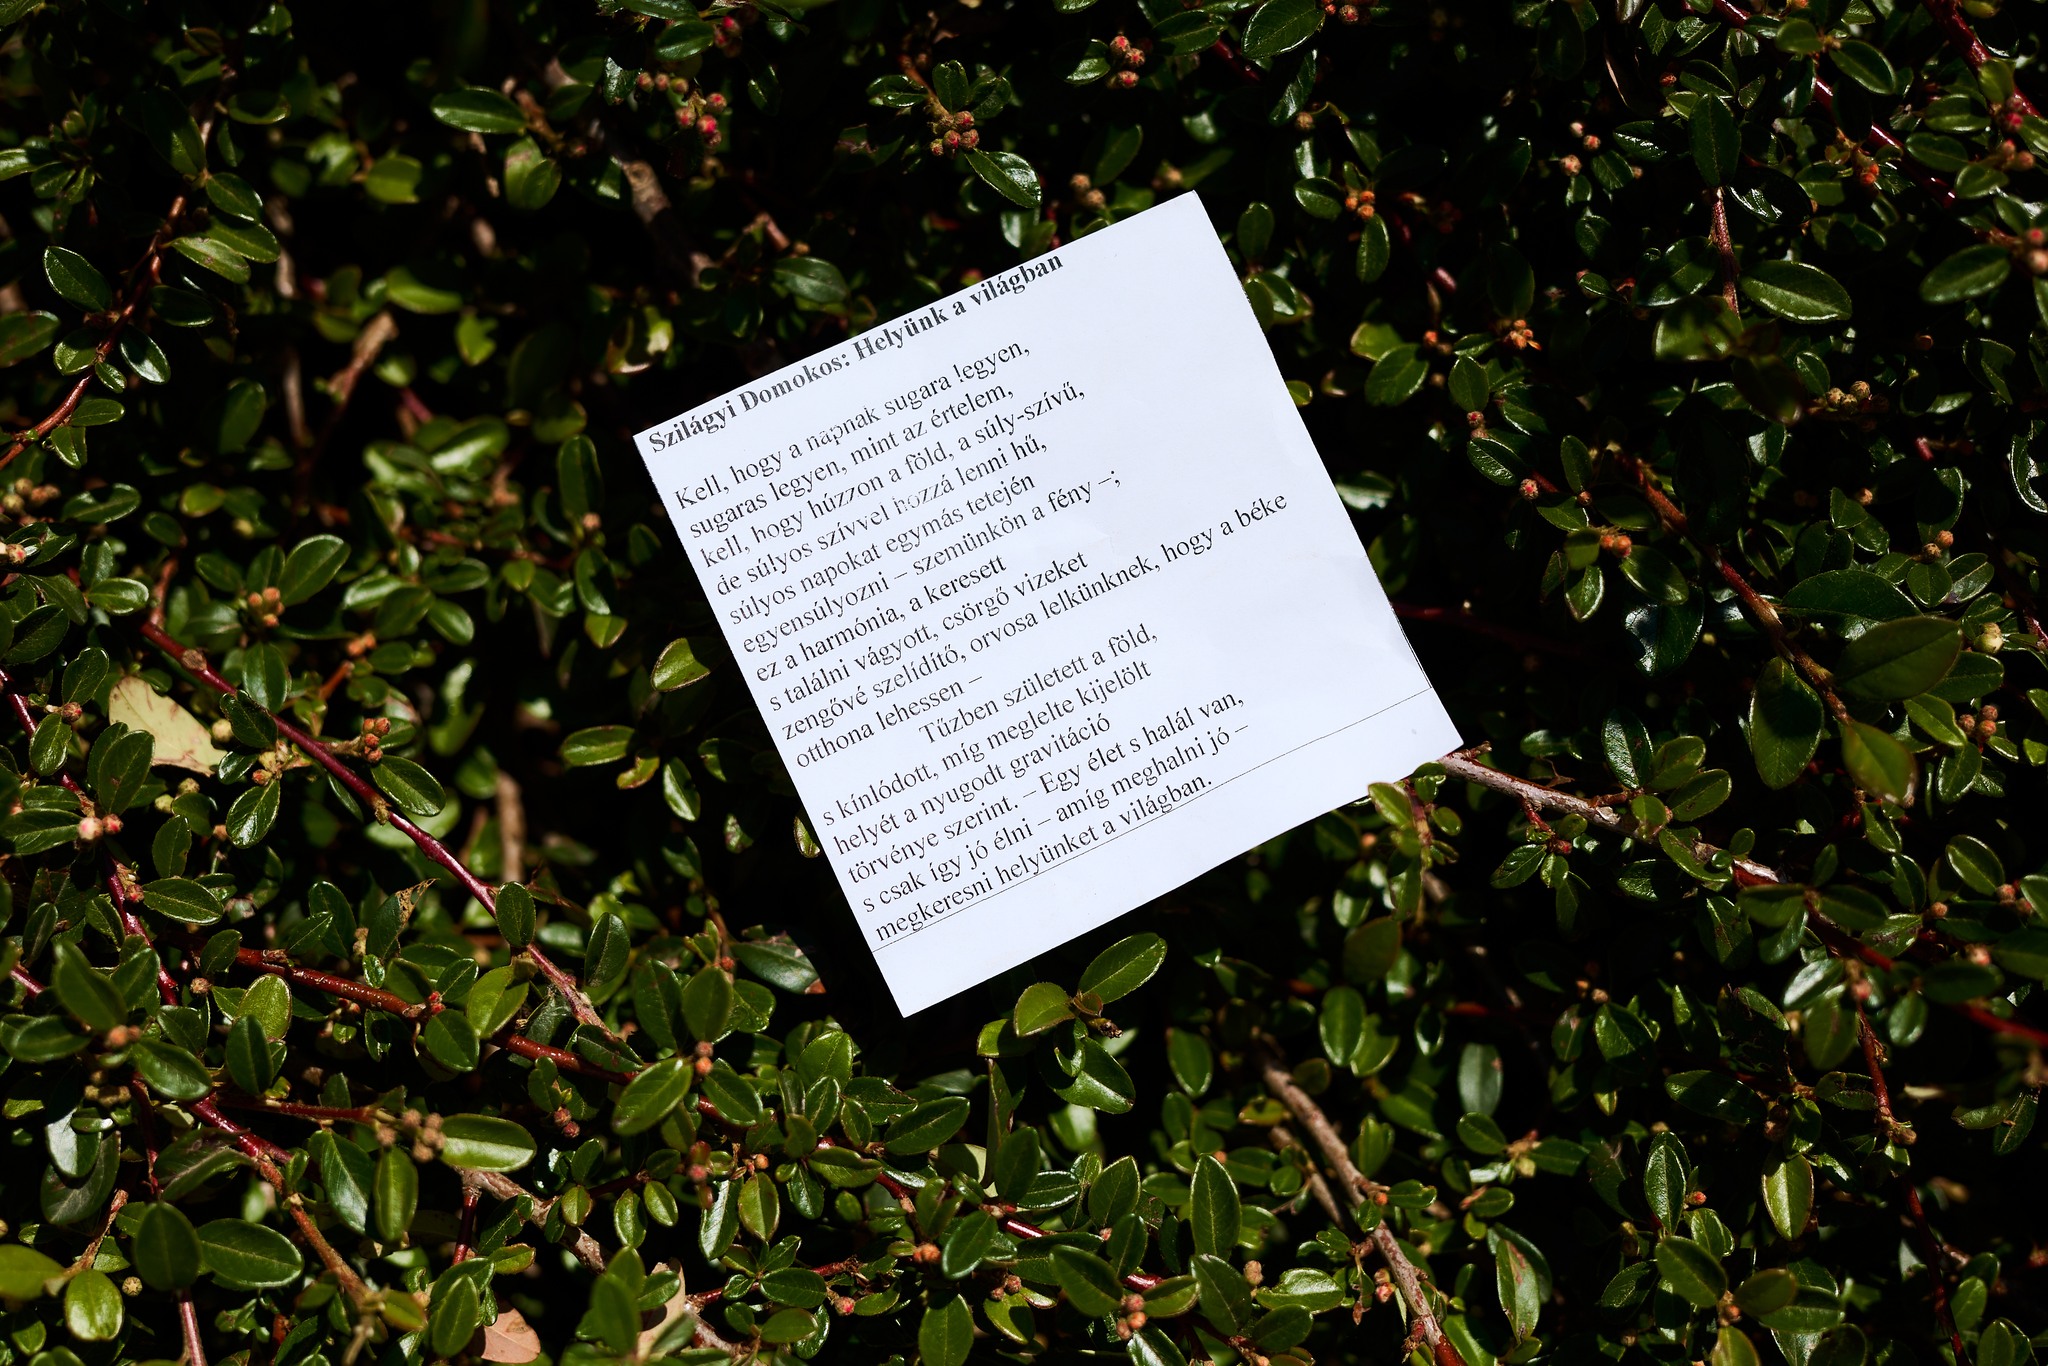 Szilágyi Domokos: Helyünk a világban
Kell, hogy a napnak sugara legyen,
sugaras legyen, mint az értelem,
kell, hogy húzzon a föld, a súly-szívű,
de súlyos szívvel hozzá lenni hű,
súlyos napokat egymás tetején
egyensúlyozni – szemünkön a fény –;
ez a harmónia, a keresett
s találni vágyott, csörgő vizeket
zengővé szelídítő, orvosa lelkünknek, hogy a béke
otthona lehessen –
Tűzben született a föld,
s kínlódott, míg meglelte kijelölt
helyét a nyugodt gravitáció
törvénye szerint. – Egy élet s halál van,
s csak így jó élni – amíg meghalni jó –
megkeresni helyünket a világban.